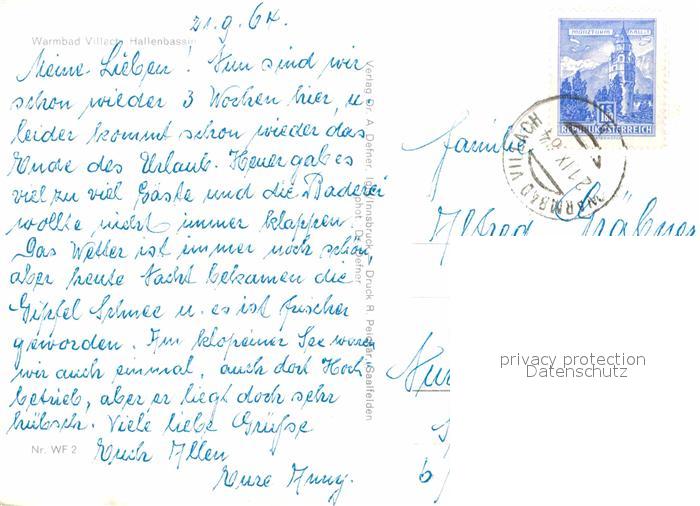 21.9.64.
Warmbad Villach, Hallenbassin
Meine Lieben! Nun sind wir
schon wieder 3 Wochen hier, u.
leider kommt schon wieder das
Ende des Urlaub. Heuer gab es
viel zu viel Gäste und die Baderei
wollte nicht immer klappen.
Das Wetter ist immer noch schön,
aber heute Nacht bekamen die
Gipfel Schnee u. es ist frischer
geworden. Am Klopeiner See waren
wir auch einmal, auch dort Hoch-
betrieb, aber er liegt doch sehr
hübsch. Viele liebe Grüße
Euch Allen
Eure Anny.
Nr. WF 2
Verlag Dr. A. Defner, Igls/Innsbruck
Druck R.
Saalfelden
MÜNZTURM HALL i. T.
REPUBLIK ÖSTERREICH
WARMBAD VILLACH
21.IX.64
Familie
Alfred
privacy protection
Datenschutz